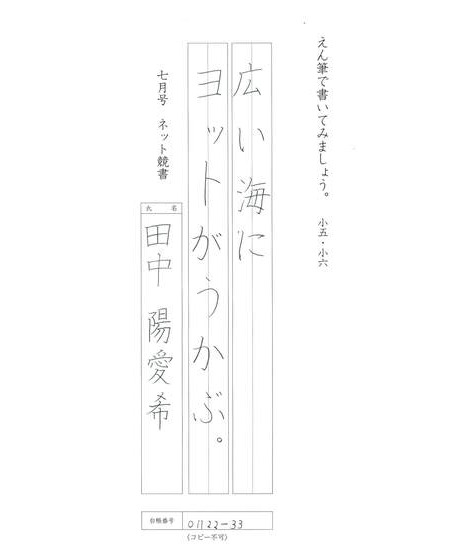 えん筆で書いてみましょう。 小五・小六
広い海に
ヨットがうかぶ。
七月号 ネット競書
氏名
田中 陽愛希
台帳番号 0122-33
(コピー不可)